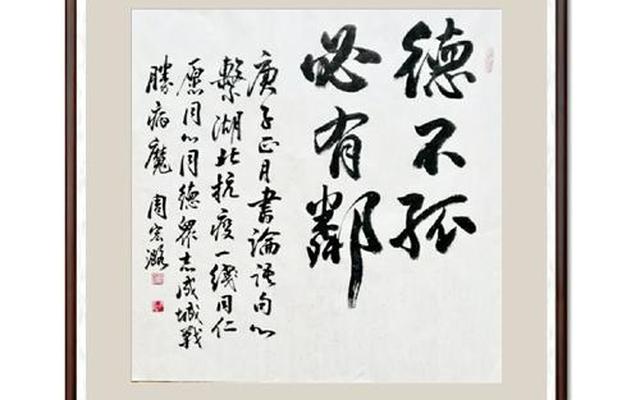 德不孤
必有鄰
庚子正月書論語句心
繫湖北抗疫一綫同仁
愿同心同德眾志成城戰
勝病魔 周宏灝